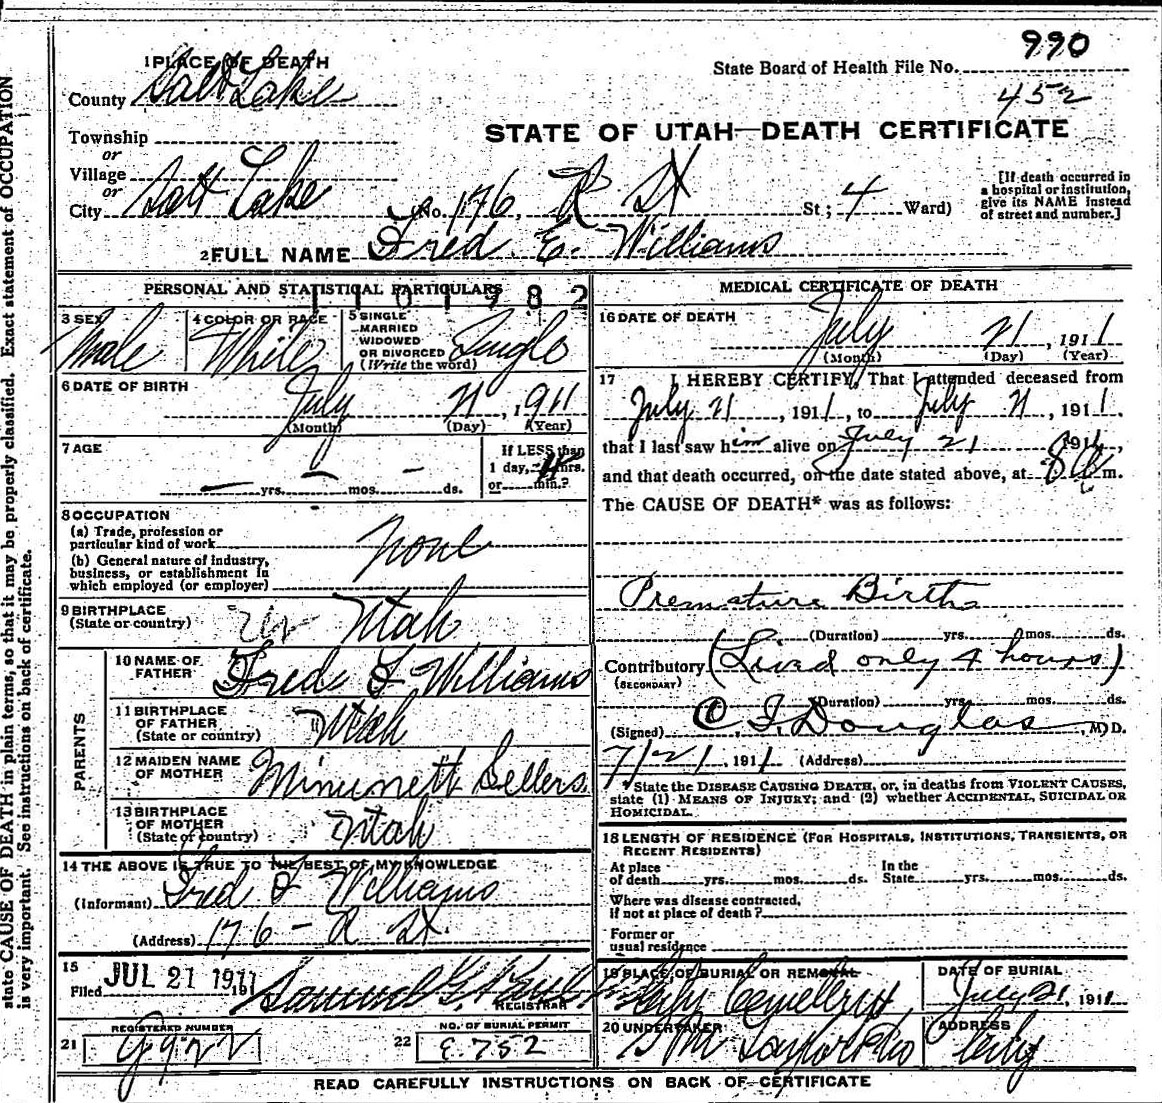 990
State Board of Health File No.
452
1 PLACE OF DEATH
County Salt Lake
STATE OF UTAH—DEATH CERTIFICATE
Township
or
Village
or
City Salt Lake No. 176, R St St; 4 Ward)
[If death occurred in
a hospital or institution,
give its NAME instead
of street and number.]
2 FULL NAME Fred E. Williams
PERSONAL AND STATISTICAL PARTICULARS
1101982
3 SEX
Male
4 COLOR OR RACE
White
5 SINGLE
MARRIED
WIDOWED
OR DIVORCED
(Write the word)
Single
6 DATE OF BIRTH
July 21, 1911
(Month) (Day) (Year)
7 AGE
— yrs. — mos. — ds.
If LESS than
1 day, 4 hrs.
or min.?
8 OCCUPATION
(a) Trade, profession or
particular kind of work
None
(b) General nature of industry,
business, or establishment in
which employed (or employer)
9 BIRTHPLACE
(State or country)
Utah
PARENTS
10 NAME OF
FATHER
Fred F Williams
11 BIRTHPLACE
OF FATHER
(State or country)
Utah
12 MAIDEN NAME
OF MOTHER
Minunett Sellers
13 BIRTHPLACE
OF MOTHER
(State or country)
Utah
14 THE ABOVE IS TRUE TO THE BEST OF MY KNOWLEDGE
(Informant) Fred F Williams
(Address) 176 - R St.
15
Filed JUL 21 1911, 191
REGISTRAR
REGISTERED NUMBER
21 G922
NO. OF BURIAL PERMIT
22 E.752
MEDICAL CERTIFICATE OF DEATH
16 DATE OF DEATH
July 21, 1911
(Month) (Day) (Year)
17 I HEREBY CERTIFY, That I attended deceased from
July 21, 1911, to July 21, 1911,
that I last saw him alive on July 21, 1911,
and that death occurred, on the date stated above, at 8 A m.
The CAUSE OF DEATH* was as follows:
Premature Birth
(Duration) yrs. mos. ds.
Contributory (Lived only 4 hours)
(SECONDARY)
(Duration) yrs. mos. ds.
(Signed) C. F. Douglas, M.D.
7/21, 1911 (Address)
*State the DISEASE CAUSING DEATH, or, in deaths from VIOLENT CAUSES,
state (1) MEANS OF INJURY; and (2) whether ACCIDENTAL, SUICIDAL OR
HOMICIDAL.
18 LENGTH OF RESIDENCE (FOR HOSPITALS, INSTITUTIONS, TRANSIENTS, OR
RECENT RESIDENTS)
At place
of death yrs. mos. ds.
In the
State yrs. mos. ds.
Where was disease contracted,
if not at place of death?
Former or
usual residence
19 PLACE OF BURIAL OR REMOVAL
City Cemetery
DATE OF BURIAL
July 21, 1911
20 UNDERTAKER
S M Taylor
ADDRESS
City
READ CAREFULLY INSTRUCTIONS ON BACK OF CERTIFICATE
state CAUSE OF DEATH in plain terms, so that it may be properly classified. Exact statement of OCCUPATION
is very important. See instructions on back of certificate.